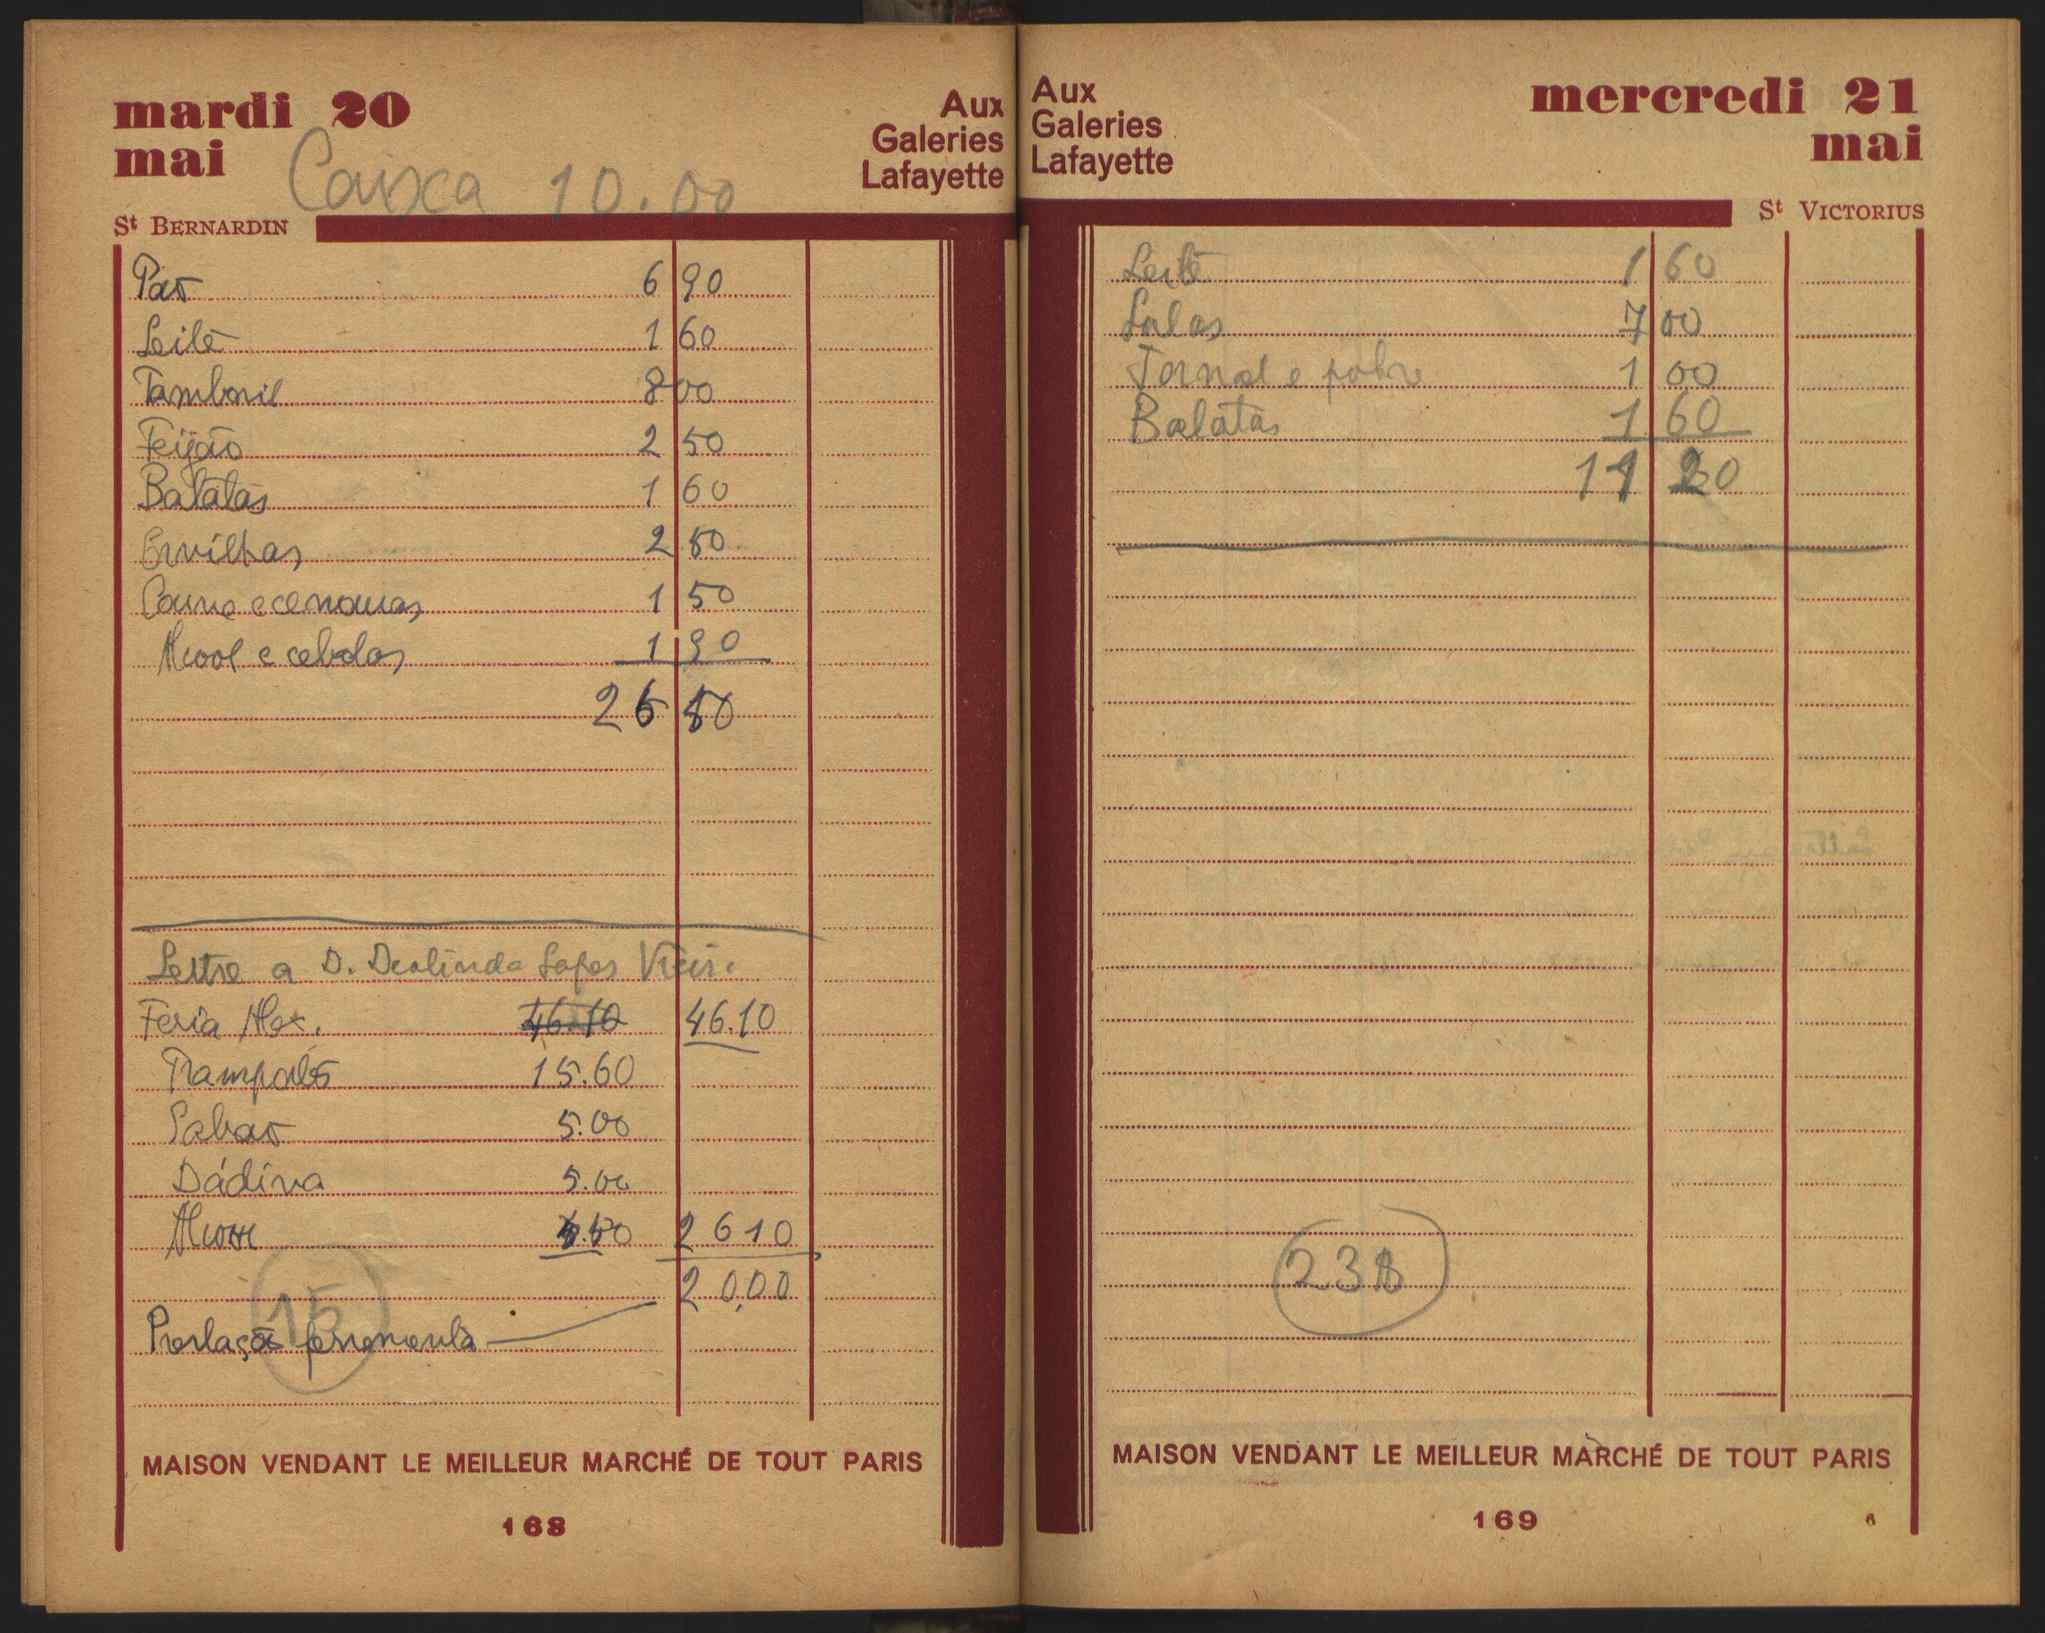 mardi 20
mai
Aux
Galeries
Lafayette
Caixa 10.00
St BERNARDIN
Pão 6 90
Leite 1 60
Tamboril 8 00
Feijão 2 50
Batatas 1 60
Ervilhas 2 50
Couve e cenouras 1 50
Alcool e cebolas 1 90
26 50
Lettre a D. Deolinda Lopes Vieir.
Feria Alex. 46.10 46.10
Transportes 15.60
Sabao 5.00
Dádiva 5.00
.50 26 10
20,00
15
Prestação
MAISON VENDANT LE MEILLEUR MARCHÉ DE TOUT PARIS
168
Aux
Galeries
Lafayette
mercredi 21
mai
St VICTORIUS
Leite 1 60
Lulas 7 00
Jornal e pobre 1 00
Batatas 1 60
11 20
238
MAISON VENDANT LE MEILLEUR MARCHÉ DE TOUT PARIS
169
6